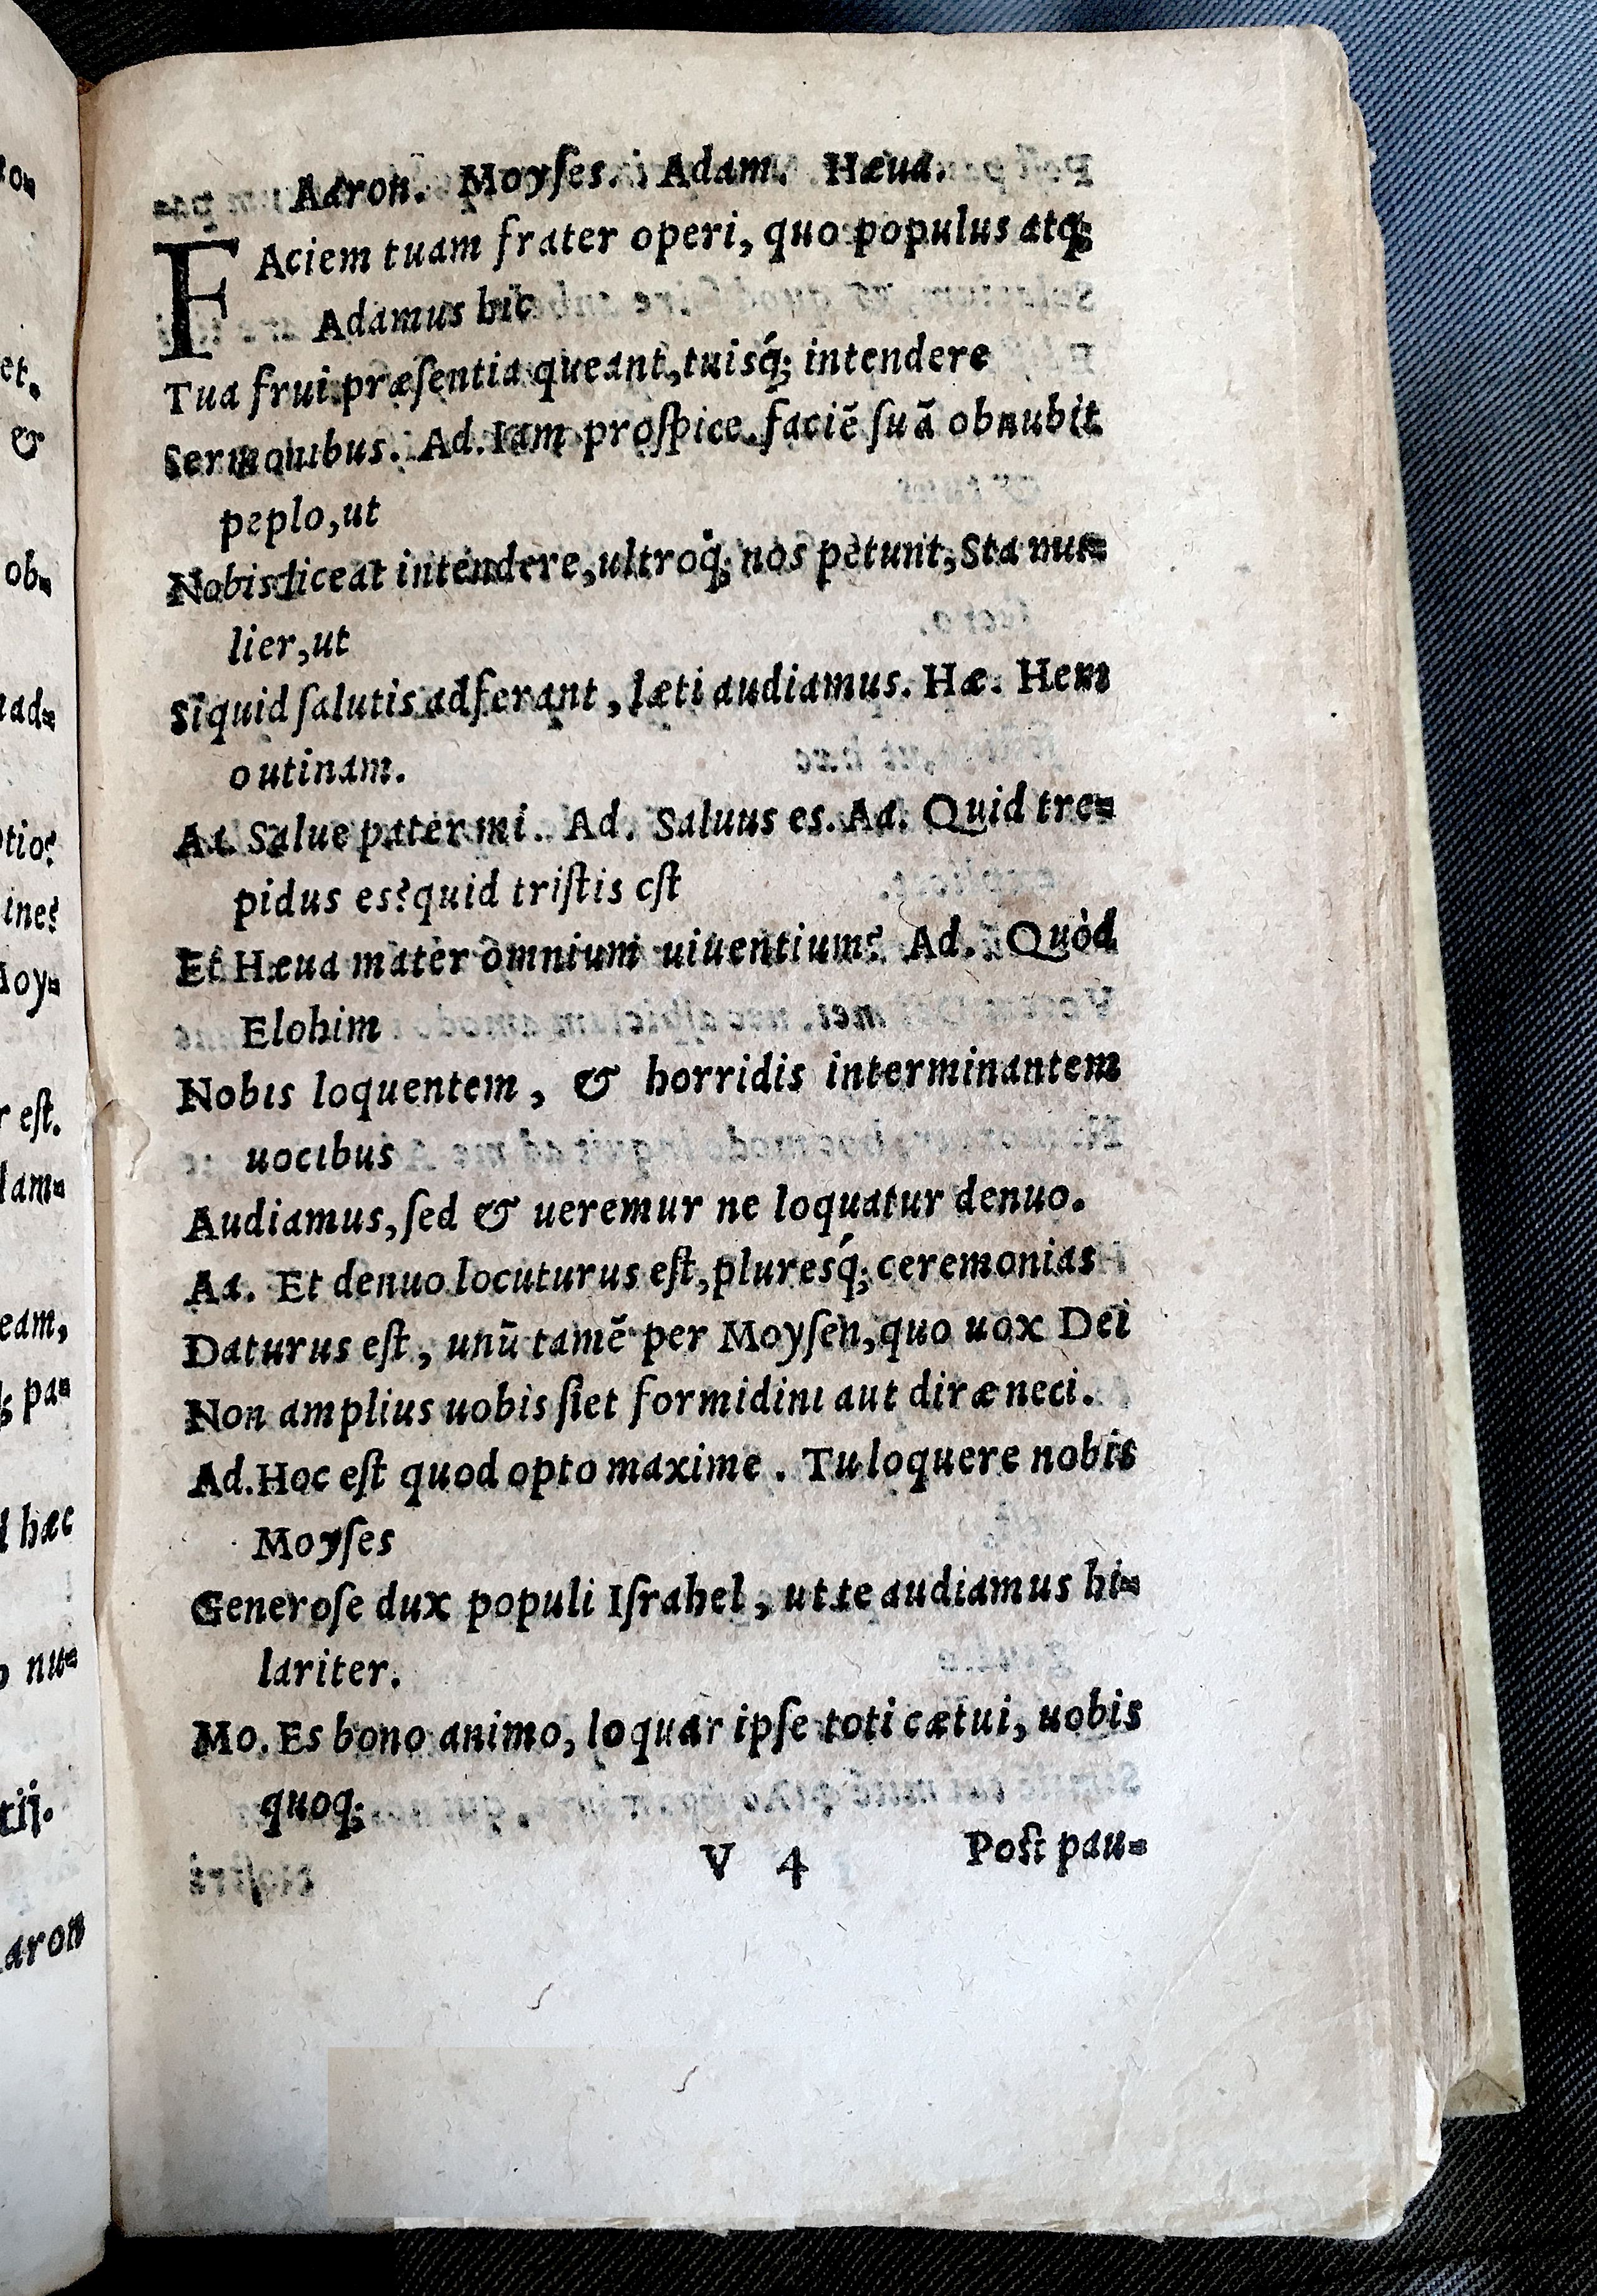 Aaron. Moyſes. Adam. Hæua.
FAciem tuam frater operi, quo populus atq;
Adamus hic
Tua frui præſentia queant, tuisq́; intendere
Sermonibus. Ad. Iam proſpice, faciē ſuā obnubit
peplo, ut
Nobis liceat intendere, ultroq́; nos petunt, Sta mu-
lier, ut
Siquid ſalutis adferant, læti audiamus. Hæ. Hem
o utinam.
Aa. Salue pater mi. Ad. Saluus es. Aa. Quid tre-
pidus es? quid triſtis eſt
Et Hæua mater omnium uiuentium? Ad. Quòd
Elohim
Nobis loquentem, & horridis interminantem
uocibus
Audiamus, ſed & ueremur ne loquatur denuo.
Aa. Et denuo locuturus eſt, pluresq́; ceremonias
Daturus eſt, unū tamē per Moyſen, quo uox Dei
Non amplius uobis ſiet formidini aut diræ neci.
Ad. Hoc eſt quod opto maxime. Tu loquere nobis
Moyſes
Generoſe dux populi Iſrahel, ut te audiamus hi-
lariter.
Mo. Es bono animo, loquar ipſe toti cætui, uobis
quoq;
V 4 Poſt pau-
et.
&
ob-
ines
Moy-
r eſt.
eam,
pa-
hæc
nu-
tij.
aron